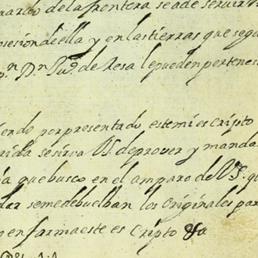 de la frontera se a de servir V
posesion de ella y en las tierras que segu
pn Dn Juo de Rosa le pueden pertenes
iendo por presentado este mi escripto
rida se sirva Vs de prover y manda
ia que busco en el amparo de Vs. q
dar se me debuelban los originales par
en forma este escripto &a